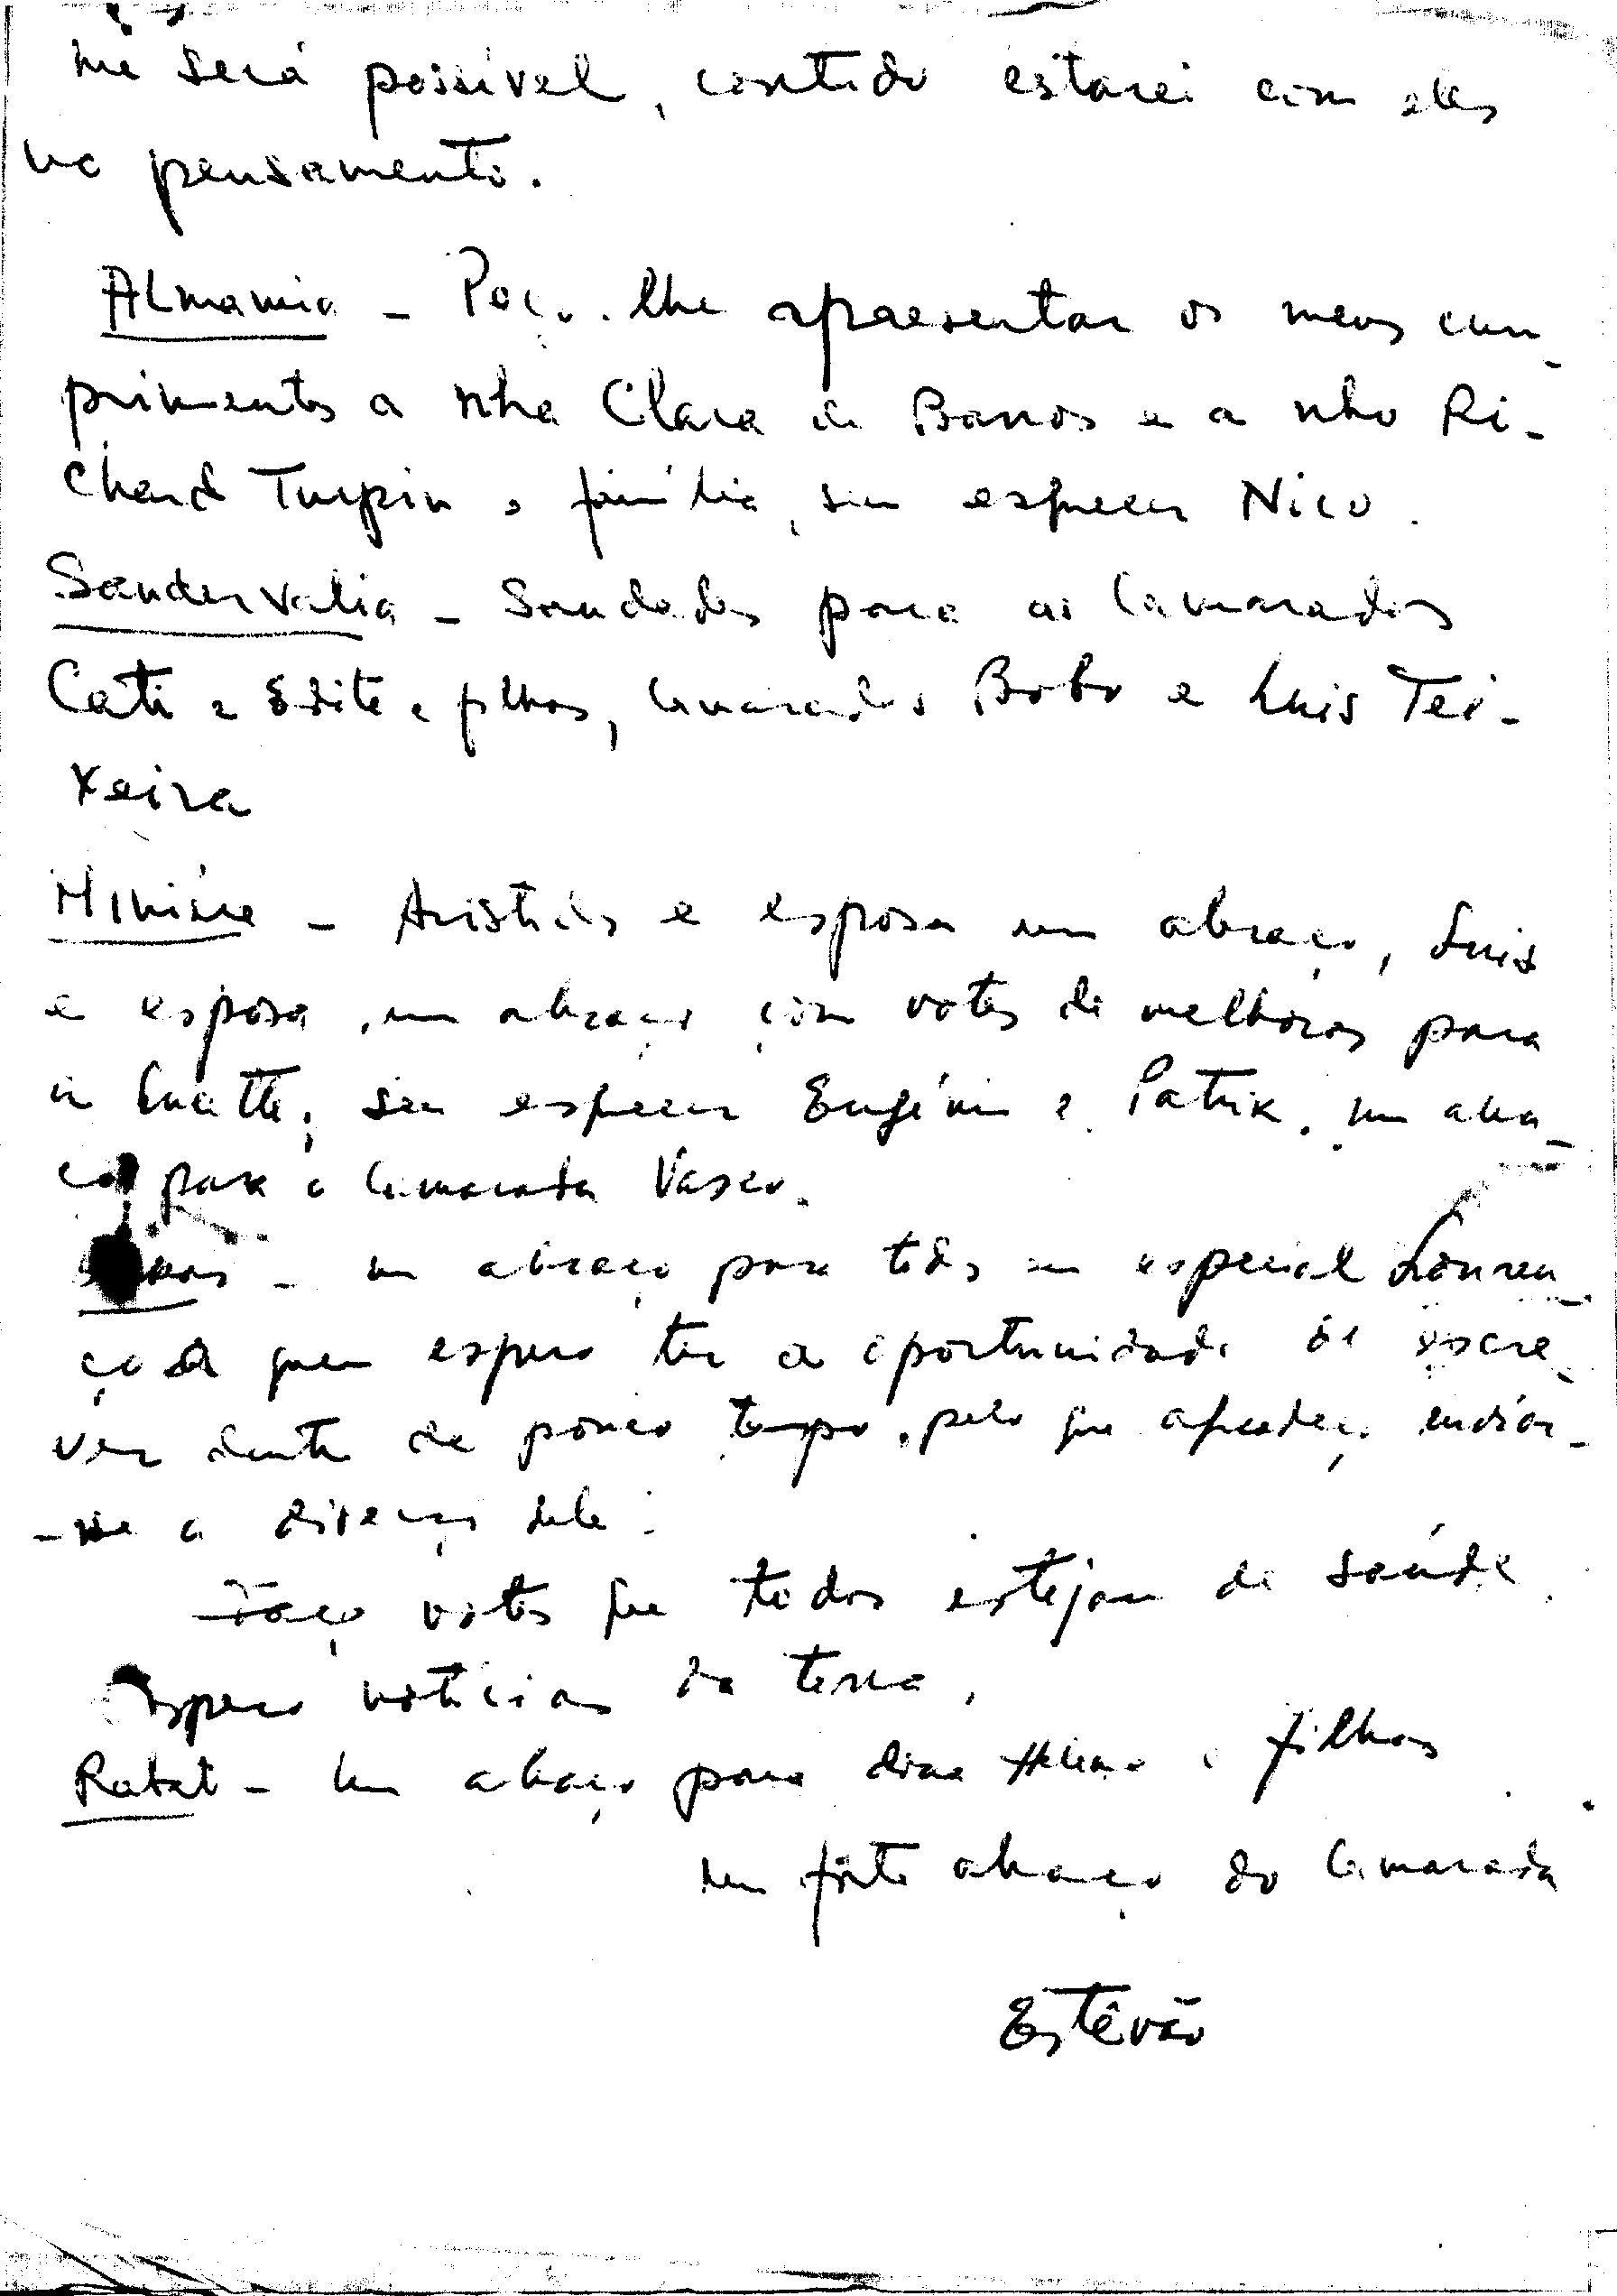 me será possível, contudo estarei com eles
no pensamento.
Almamia - Peço-lhe apresentar os meus cum-
primentos a nha Clara de Barros e a nho Ri-
chard Turpin e família, sem esquecer Nico.
Sandervalia - Saudades para as Camaradas
Cati e Edite e filhos, camaradas Bobo e Luis Tei-
xeira
Minière - Aristides e esposa um abraço, Luis
e esposa, um abraço com votos de melhoras para
a sem esquecer Eugénia e Patrik. um abra-
ço para o Camarada Vasco.
- um abraço para todos em especial Louren-
ço a quem espero ter a oportunidade de escre-
ver dentro de pouco tempo, pelo que agradeço enviar-
-me a direcção dele.
Faço votos que todos estejam de saúde.
Espero notícias da terra.
Rabat - Um abraço para dina Helena e filhos
um forte abraço do Camarada
Estêvão